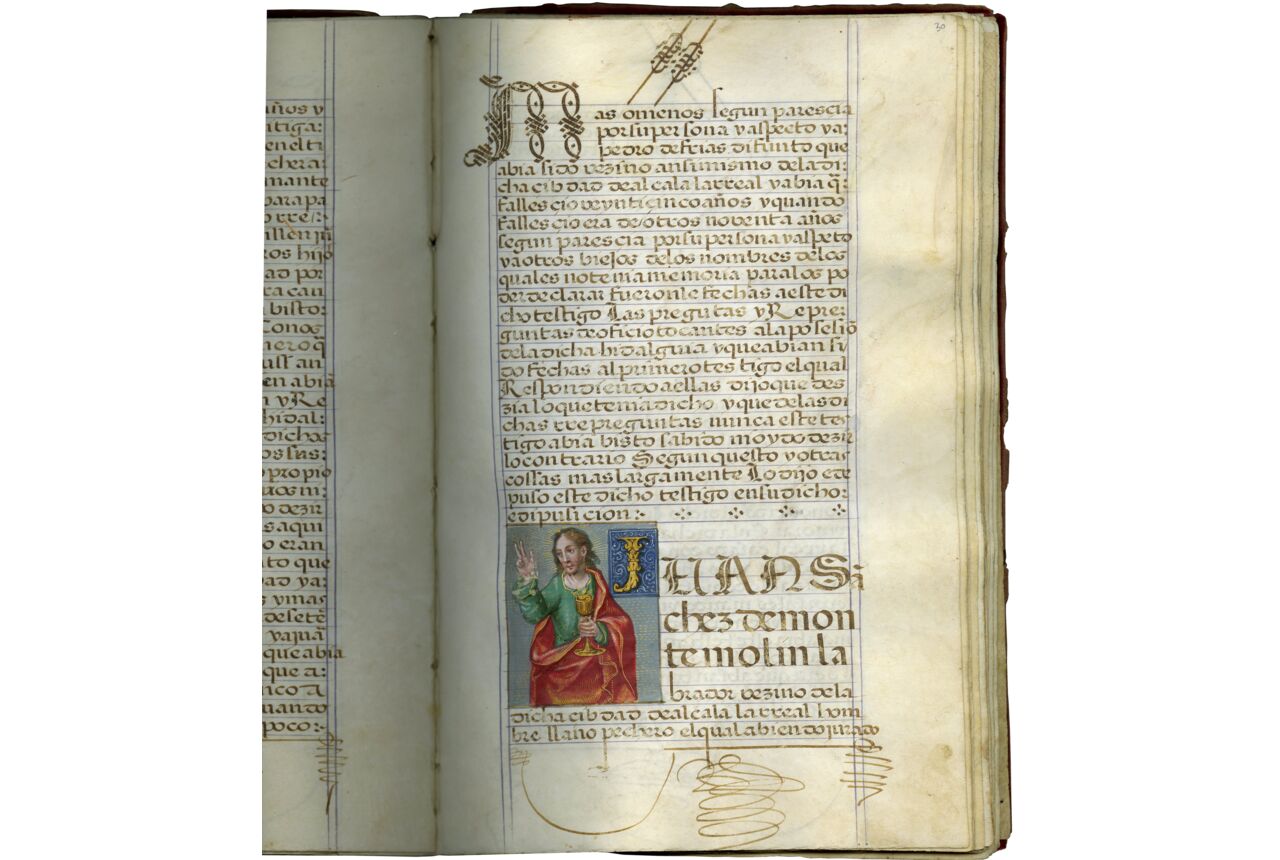 ños y
tiga:
en el ti
chera:
nante
para pa
ros hijo
ad por
ra cau
bisto:
Conos
nero q̃
uss an
en abia
n y Re
hidal:
dichos
os sus:
propio
o dezir
s aqui
o eran
to que
ad ya:
y mas
de sete
ya jua
que abia
que a:
nco a
uando
poco:~
30
Mas omenos segun parescia
por su persona y aspecto ya:
pedro de frias difunto que
abia sido vezino ansimismo de la di:
cha cibdad de alcala la rreal y abia q̃:
fallesçio veynti cinco años y quando
fallesçio era de otros noventa años
segun parescia por su persona y aspeto
y a otros biejos de los nombres de los
quales no tenia memoria para los po
der declarar fueron le fechas a este di
cho testigo Las pregũtas y Repre
guntas de oficio tocantes a la posesiõ
de la dicha hidalguia y que abian sy
do fechas al primero testigo el qual
Respondiendo a ellas dijo que des
zia lo que tenia dicho y que de las di
chas rrepreguntas nunca este tes
tigo abia bisto sabido ni oydo dezir
lo contrario Segun questo y otras
cossas mas largamente Lo dijo e de
puso este dicho testigo en su dicho:
e dipusicion:~
JUAN Sã
chez de mon
temolin la
brador vezino de la
dicha cibdad de alcala la rreal hom
bre llano pechero el qual abiendo jurado